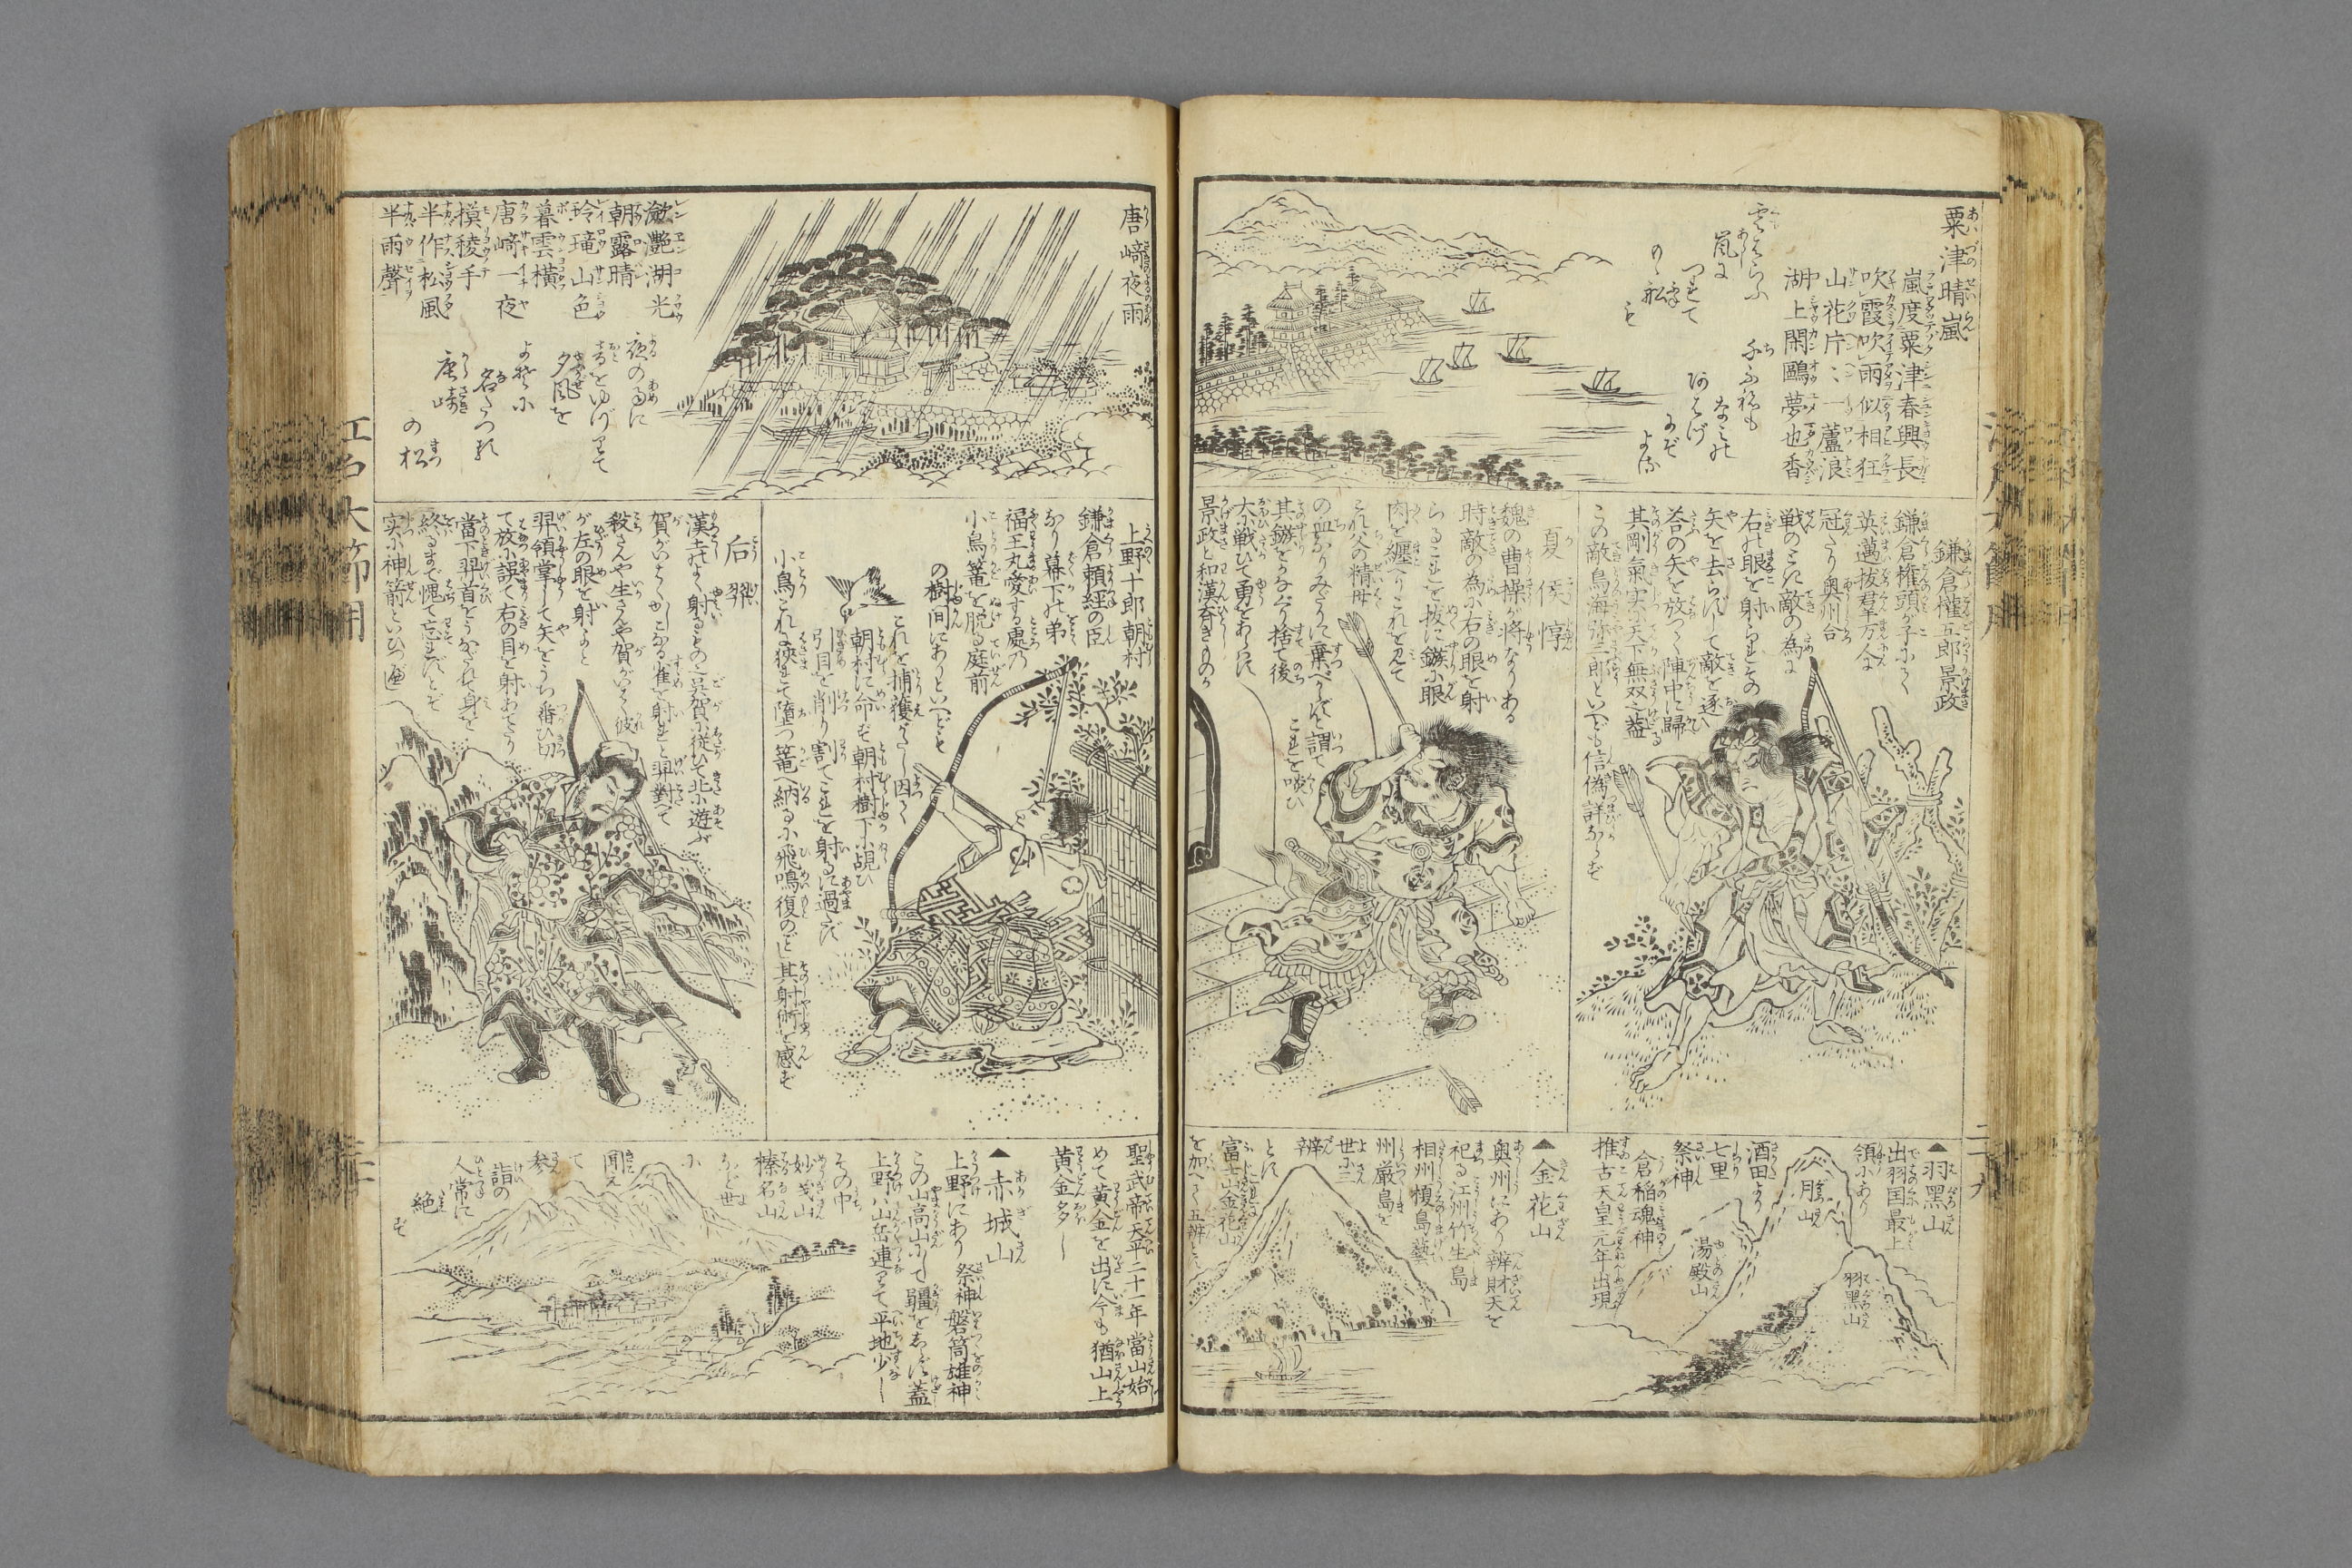 粟津晴嵐
嵐度粟津春興長
吹霞吹雨似相狂
山花片〻一蘆浪
湖上閑鷗夢也香
雲はらふ
嵐に
つれて
の舩も
ちふねも
なみの
あはづ
にぞ
よる
鎌倉權五郎景政
鎌倉権頭が子にて
英邁抜羣万人に
冠たり奥州合
戦のとき敵の為に
右の眼を射られその
矢を去らずして敵を逐ひ
荅の矢を放つて陣中に歸る
其剛氣実に天下無双と
この敵鳥海弥三郎といへども信偽詳ならず
夏侯惇
魏の曹操が將なりある
時敵の為に右の眼を射
らるこれを抜に鏃に眼
肉を纏へりこれを見て
これ父の精母
の血なりみだりに棄べからずと謂て
これを啖ひ
其鏃をかなぐり捨て後
大に戦ひて勇をあらはす
景政と和漢
▲羽黒山
出羽国最上
領にあり
酒田より
七里
祭神
倉稲魂神
推古天皇元年出現
月山
湯殿山
羽黒山
▲金花山
奥州にあり辨財天を
祀る江州竹生島
相州榎島藝
州厳島を
世に三
辨
とす
富士山金花山
を加へて五辨
唐﨑夜雨
瀲灩湖光
朝露晴
玲瓏山色
暮雲横
唐﨑一夜
模稜手
半作松風
半雨聲
夜の雨に
音をゆづりて
夕風を
よそに
名たつる
唐﨑
の松
上野十郎朝村
鎌倉頼経の臣
なり幕下の弟
福王丸愛する處乃
小鳥篭を脱る庭前
の樹間にありといへども
これを捕獲がたし因て
朝村に命ず朝村樹下に覘ひ
引目を削り割てこれを射るに過ず
小鳥これに狹れて墮つ篭へ納るに飛鳴復のごとし其射術を感ず
后羿
漢土のよく射るもの也呉賀に従ひて北に遊ぶ
賀がいはくかしこなる雀を射れと羿對へて
殺さんや生さんや賀がいはく彼
が左の眼を射よと
羿領掌して矢をうち番ひ切
て放に誤て右の目を射あてたり
當下羿首をうなだれて身を
終るまで愧て忘れずとぞ
実に神箭といひつべし
聖武帝天平二十一年當山始
めて黄金を出す今も猶山上
黄金多し
▲赤城山
上野にあり祭神磐筒雄神
この山高山にして疆をしらず蓋
上野ハ山岳連りて平地少し
その中
妙義山
榛名山
など世
に
聞え
て
参
詣の
人常に
絶
ず